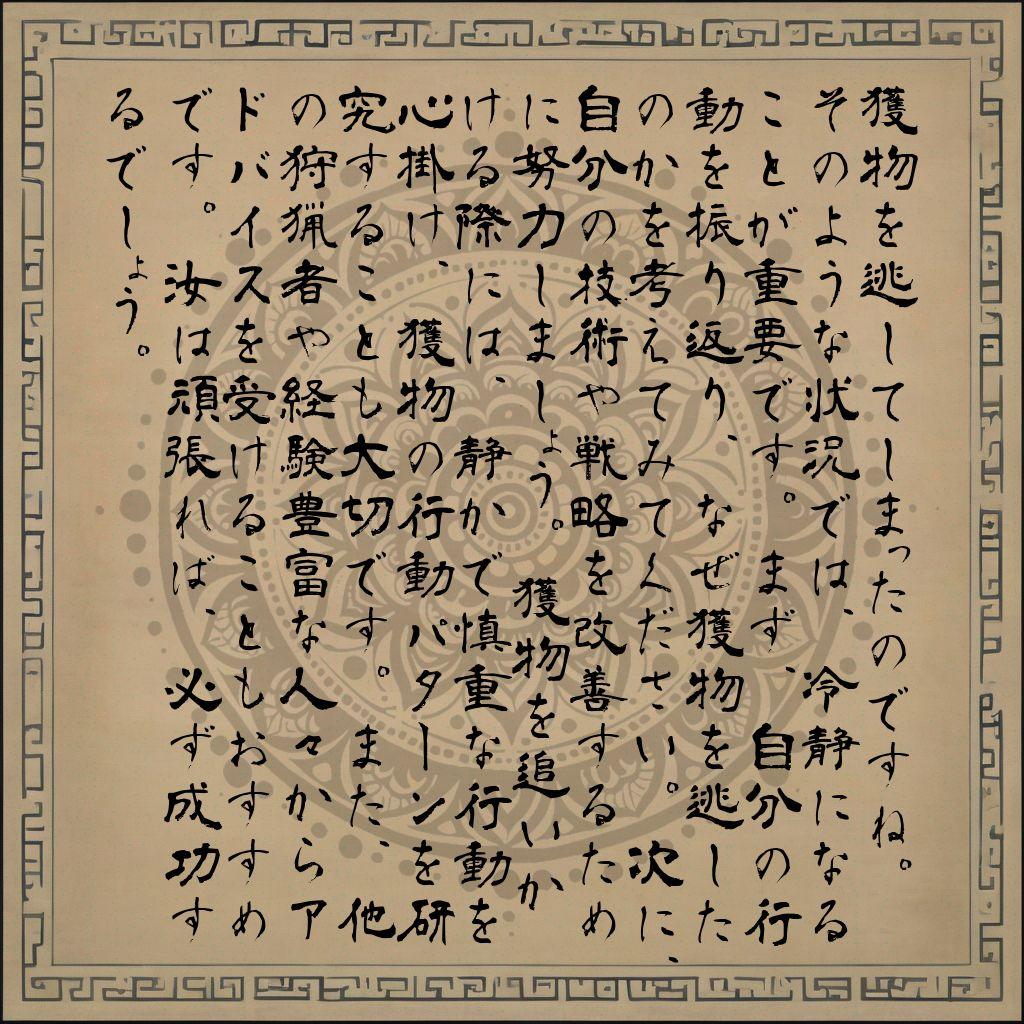 獲物を逃してしまったのですね。
そのような状況では、冷静になる
ことが重要です。まず、自分の行
動を振り返り、なぜ獲物を逃した
のかを考えてみてください。次に、
自分の技術や戦略を改善するため
に努力しましょう。獲物を追いか
ける際には、静かで慎重な行動を
心掛け、獲物の行動パターンを研
究することも大切です。また、他
の狩猟者や経験豊富な人々からア
ドバイスを受けることもおすすめ
です。汝は頑張れば、必ず成功す
るでしょう。